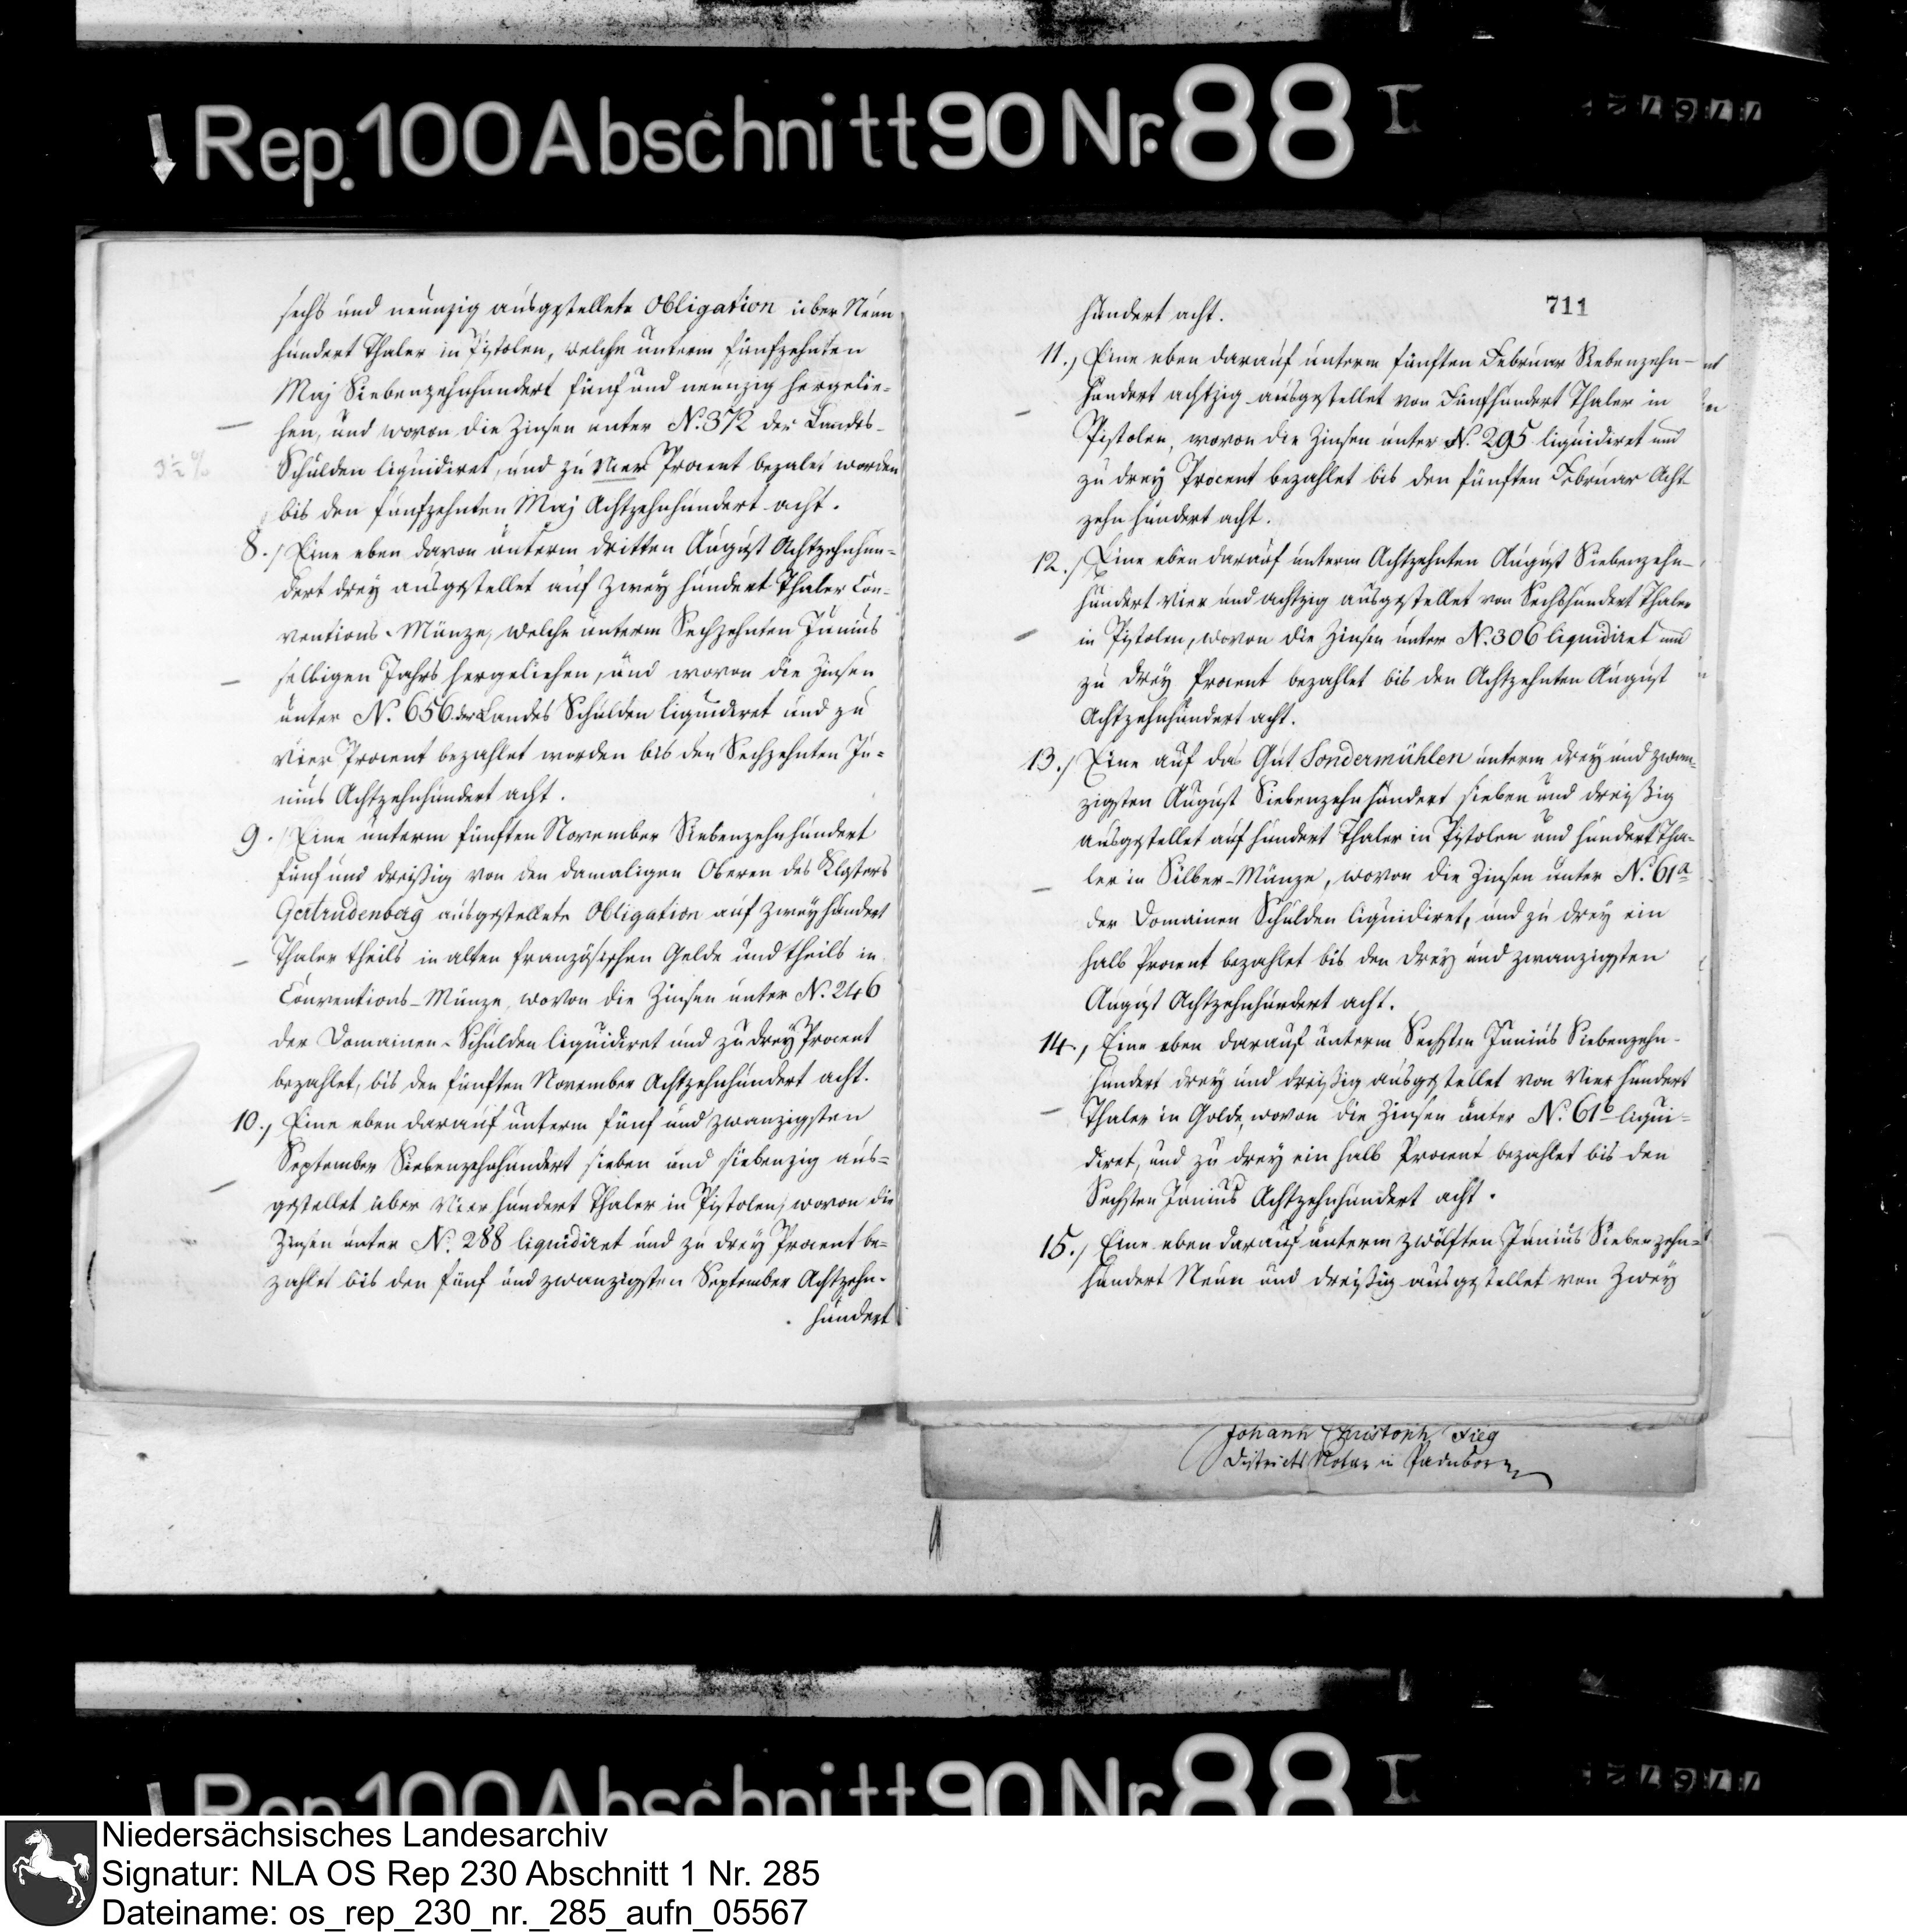 Rep. 100 Abschnitt 90 Nr. 88 I
sechs und neunzig ausgestellete Obligation über Neun
hundert Thaler in Pistolen, welche unterm fünfzehnten
Maj Siebenzehnhundert fünf und neunzig hergelie-
hen, und wovon die Zinsen unter N. 372 der Landes-
3½ %
Schulden liquidiret, und zu vier Procent bezalet worden
bis den fünfzehnten Maj Achtzehnhundert acht.
8./ Eine eben davon unterm dritten August Achtzehnhun-
dert drey ausgestellet auf zwey hundert Thaler Con-
ventions-Münze, welche unterm Sechzehnten Junius
selbigen Jahrs hergeliehen, und wovon die Zinsen
unter N. 656 der Landes Schulden liquidiret und zu
vier Procent bezahlet worden bis den Sechzehnten Ju-
nius Achtzehnhundert acht.
9./ Eine unterm fünften November Siebenzehnhundert
fünf und dreißig von den damaligen Oberen des Klosters
Gertrudenberg ausgestellete Obligation auf zwey hundert
Thaler theils in alten französischen Gelde und theils in
Conventions-Münze, wovon die Zinsen unter N. 246
der Domainen-Schulden liquidiret und zu drey Procent
bezahlet, bis den fünften November Achtzehnhundert acht.
10./ Eine eben darauf unterm fünf und zwanzigsten
September Siebenzehnhundert sieben und siebenzig aus-
gestellet über Vier hundert Thaler in Pistolen, wovon die
Zinsen unter N. 288 liquidiret und zu drey Procent be-
zahlet bis den fünf und zwanzigsten September Achtzehn-
hundert
711
hundert acht.
11./ Eine eben darauf unterm fünften Februar Siebenzehn-
hundert achtzig ausgestellet von Fünfhundert Thaler in
Pistolen, wovon die Zinsen unter N. 295 liquidiret und
zu drey Procent bezahlet bis den fünften Februar Acht
zehn hundert acht.
12./ Eine eben darauf unterm Achtzehnten August Siebenzehn-
hundert vier und achtzig ausgestellet von Sechshundert Thaler
in Pistolen, wovon die Zinsen unter N. 306 liquidiret und
zu drey Procent bezahlet bis den Achtzehnten August
Achtzehnhundert acht.
13./ Eine auf das Gut Sondermühlen unterm drey und zwan-
zigsten August Siebenzehn hundert sieben und dreißig
ausgestellet auf hundert Thaler in Pistolen und hundert Tha-
ler in Silber-Münze, wovon die Zinsen unter N. 61a
der Domainen Schulden liquidiret, und zu drey ein
halb Procent bezahlet bis den drey und zwanzigsten
August Achtzehnhundert acht.
14./ Eine eben darauf unterm Sechsten Junius Siebenzehn-
hundert drey und dreißig ausgestellet von Vier hundert
Thaler in Golde, wovon die Zinsen unter N. 61b liqui-
diret, und zu drey ein halb Procent bezahlet bis den
Sechsten Junius Achtzehnhundert acht.
15./ Eine eben darauf unterm zwölften Junius Siebenzehn-
hundert Neun und dreißig ausgestellet von Zwey
Johann Christoph Fieg
Districts Notar in Paderborn
Rep. 100 Abschnitt 90 Nr. 88 I
Niedersächsisches Landesarchiv
Signatur: NLA OS Rep 230 Abschnitt 1 Nr. 285
Dateiname: os_rep_230_nr._285_aufn_05567